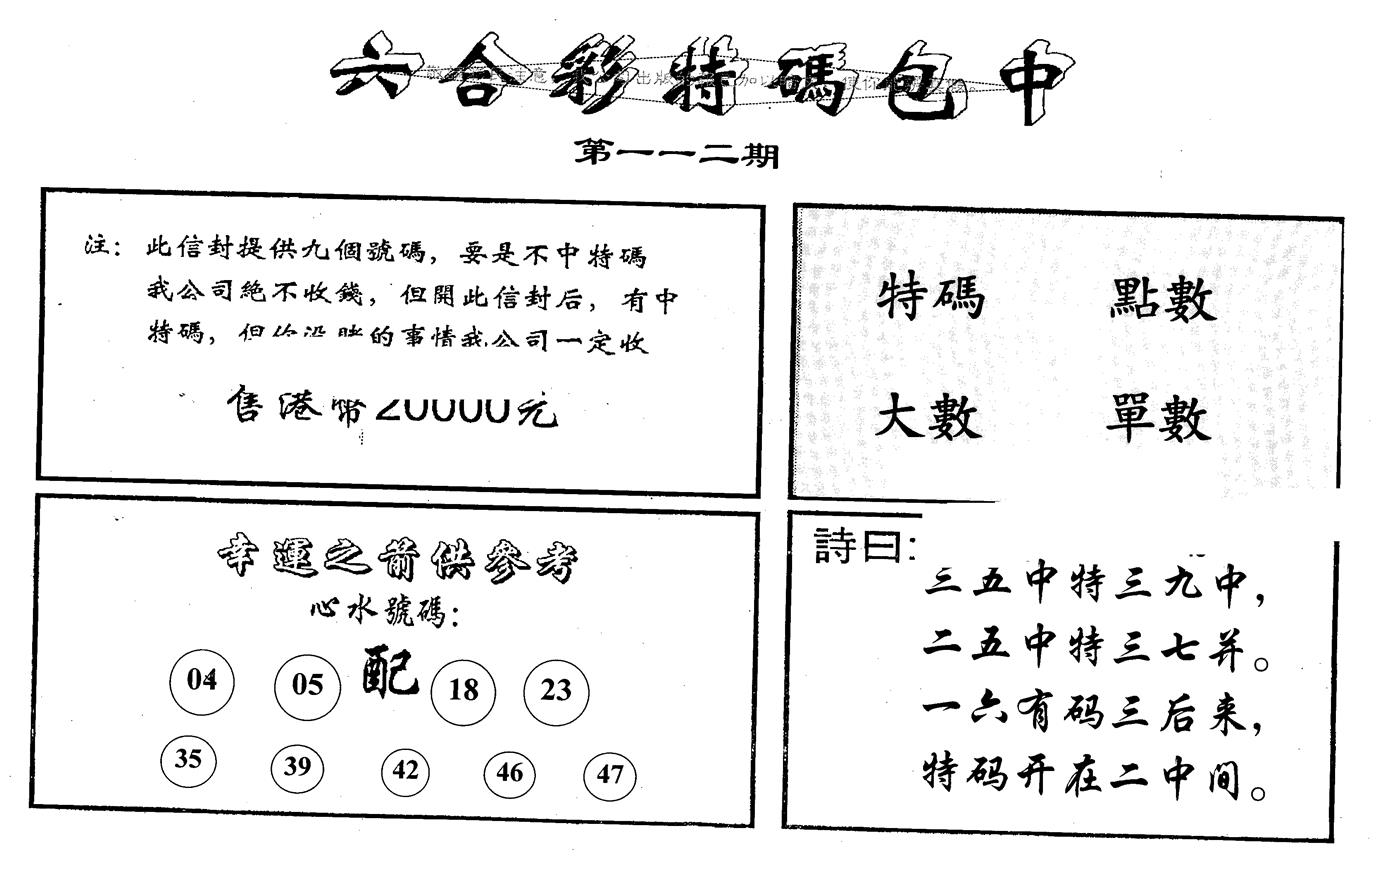 六合彩特碼包中
第一一二期
注：此信封提供九個號碼，要是不中特碼
我公司絶不收錢，但開此信封后，有中
特碼，但你没賭的事情我公司一定收
售港幣20000元
特碼 點數
大數 單數
幸運之箭供參考
心水號碼：
04 05 配 18 23
35 39 42 46 47
詩曰：
三五中特三九中，
二五中特三七并。
一六有码三后来，
特码开在二中间。